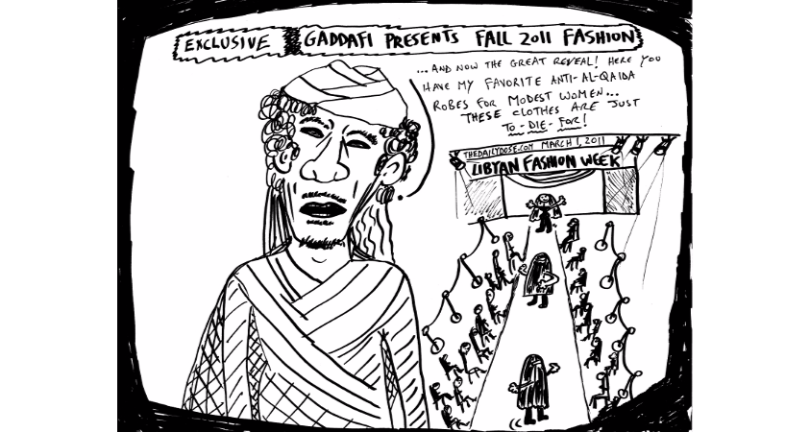 EXCLUSIVE GADDAFI PRESENTS FALL 2011 FASHION
...AND NOW THE GREAT REVEAL! HERE YOU
HAVE MY FAVORITE ANTI-AL-QAIDA
ROBES FOR MODEST WOMEN...
THESE CLOTHES ARE JUST
TO-DIE-FOR!
THEDAILYDOSE.COM MARCH 1, 2011
LIBYAN FASHION WEEK